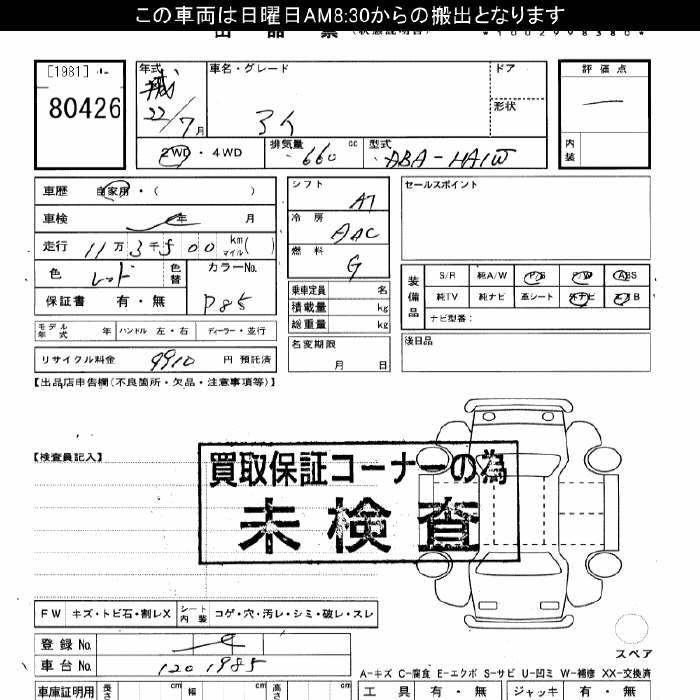 この車両は日曜日AM8:30からの搬出となります
出品票 (状態説明書) *1002998380*
[1981] 80426
年式 平成 22/7月
車名・グレード アイ
ドア
形状
評価点 —
内装
2WD・4WD
排気量 660 cc
型式 ABA-HA1W
車歴 自家用・( )
車検 年 月
走行 11万3千500 km マイル( )
色 レッド 色替
カラーNo. P85
保証書 有・無
モデル年式 年 ハンドル 左・右 ディーラー・並行
リサイクル料金 9910 円 預託済
シフト AT
冷房 AAC
燃料 G
乗車定員 名
積載量 kg
総重量 kg
名変期限 月 日
セールスポイント
装備品 S/R 純A/W P/S P/W ABS
純TV 純ナビ 革シート 外ナビ エアB
ナビ型番:
後日品
【出品店申告欄(不良箇所・欠品・注意事項等)】
【検査員記入】
買取保証コーナーの為
未検査
FW キズ・トビ石・割レX シート内装 コゲ・穴・汚レ・シミ・破レ・スレ
登録No.
車台No. 1201985
スペア
A-キズ C-腐食 E-エクボ S-サビ U-凹ミ W-補修 XX-交換済
車庫証明用 長さ cm 幅 cm 高さ cm
工具 有・無 ジャッキ 有・無